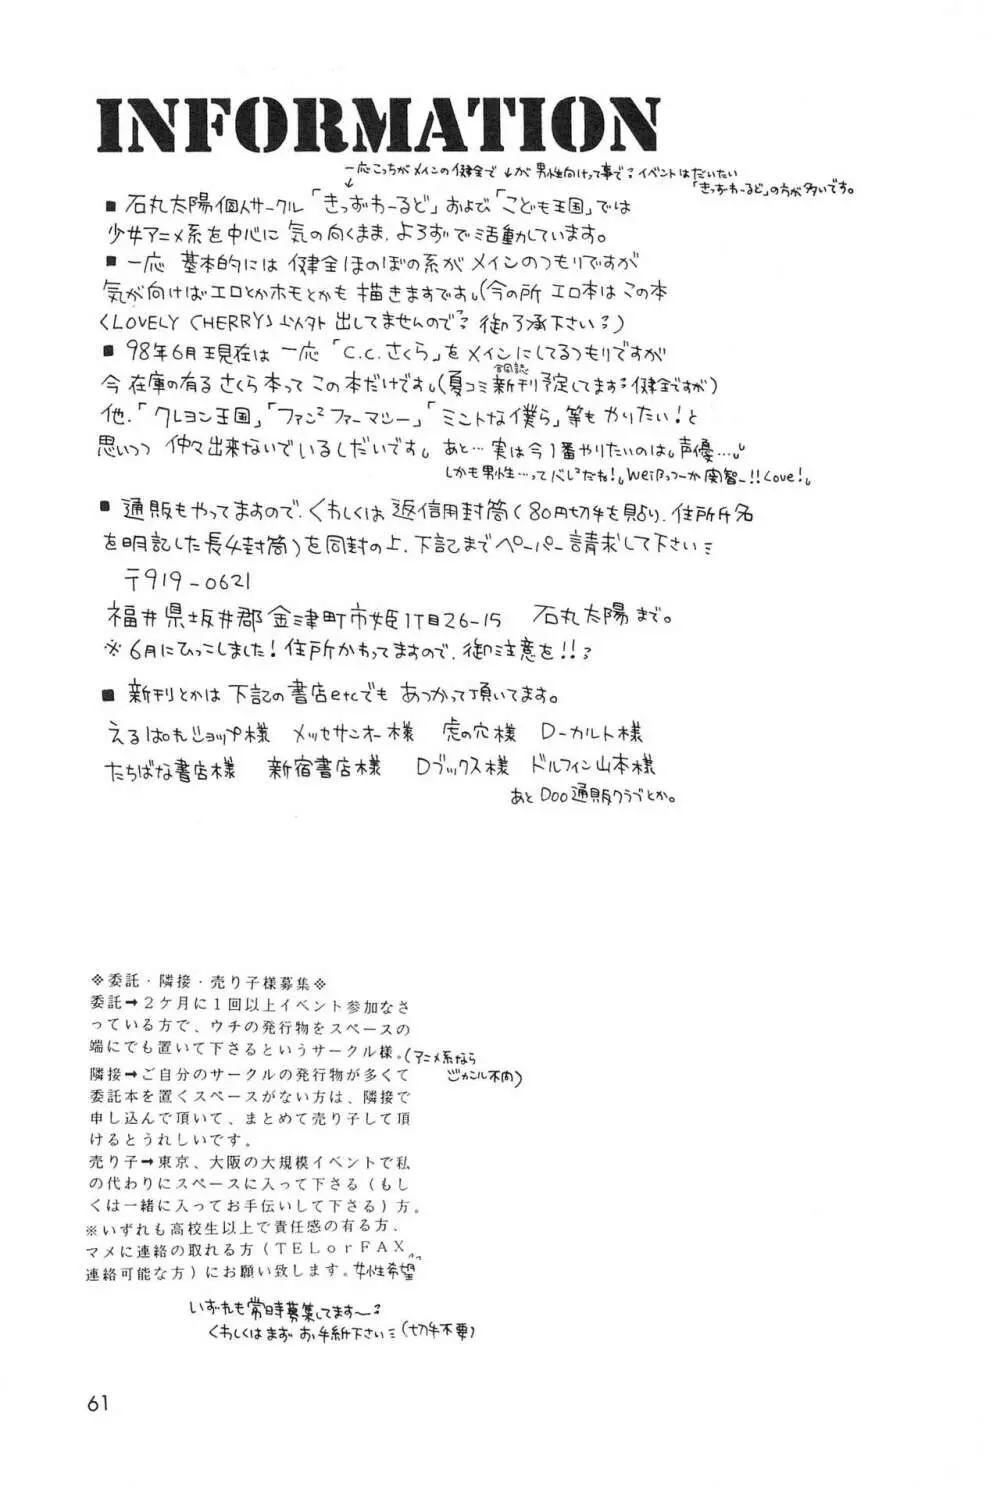 INFORMATION
一応こっちがメインの健全で ↓が男性向けって事で? イベントはだいたい
「きっずわーるど」の方が多いです。
■ 石丸太陽個人サークル「きっずわーるど」および「こども王国」では
少女アニメ系を中心に気の向くまま、よろずで活動しています。
■ 一応 基本的には 健全ほのぼの系がメインのつもりですが
気が向けばエロとかホモとかも描きますです。(今の所 エロ本はこの本
〈LOVELY CHERRY〉以外出してませんので? 御了承下さい?)
■ 98年6月現在は 一応「C.C.さくら」をメインにしてるつもりですが
今在庫の有るさくら本ってこの本だけです。(夏コミ新刊予定してます? 健全ですが)
合同誌
他、「クレヨン王国」「ファンファンファーマシー」「ミントな僕ら」等もやりたい!と
思いつつ 仲々出来ないでいるしだいです。あと…実は今1番やりたいのは。声優…。
しかも男性…って
Weiβっつーか関智ー!!Love!。
■ 通販もやってますので、くわしくは返信用封筒(80円切手を貼り、住所氏名
を明記した長4封筒)を同封の上、下記までペーパー請求して下さい
〒919-0621
福井県坂井郡金津町市姫1丁目26-15 石丸太陽まで。
※6月にひっこしました!住所かわってますので、御注意を!!?
■ 新刊とかは下記の書店etcでも あつかって頂いてます。
えるぱれショップ様 メッセサンオー様 虎の穴様 D-カルト様
たちばな書店様 新宿書店様 Dブックス様 ドルフィン山本様
あとDoo通販クラブとか。
※委託・隣接・売り子様募集※
委託➡2ケ月に1回以上イベント参加なさ
っている方で、ウチの発行物をスペースの
端にでも置いて下さるというサークル様。(アニメ系なら
ジャンル不問)
隣接➡ご自分のサークルの発行物が多くて
委託本を置くスペースがない方は、隣接で
申し込んで頂いて、まとめて売り子して頂
けるとうれしいです。
売り子➡東京、大阪の大規模イベントで私
の代わりにスペースに入って下さる(もし
くは一緒に入ってお手伝いして下さる)方。
※いずれも高校生以上で責任感の有る方、
マメに連絡の取れる方(TELorFAX
連絡可能な方)にお願い致します。女性希望
いずれも常時募集してます〜?
くわしくはまずお手紙下さい(切手不要)
61